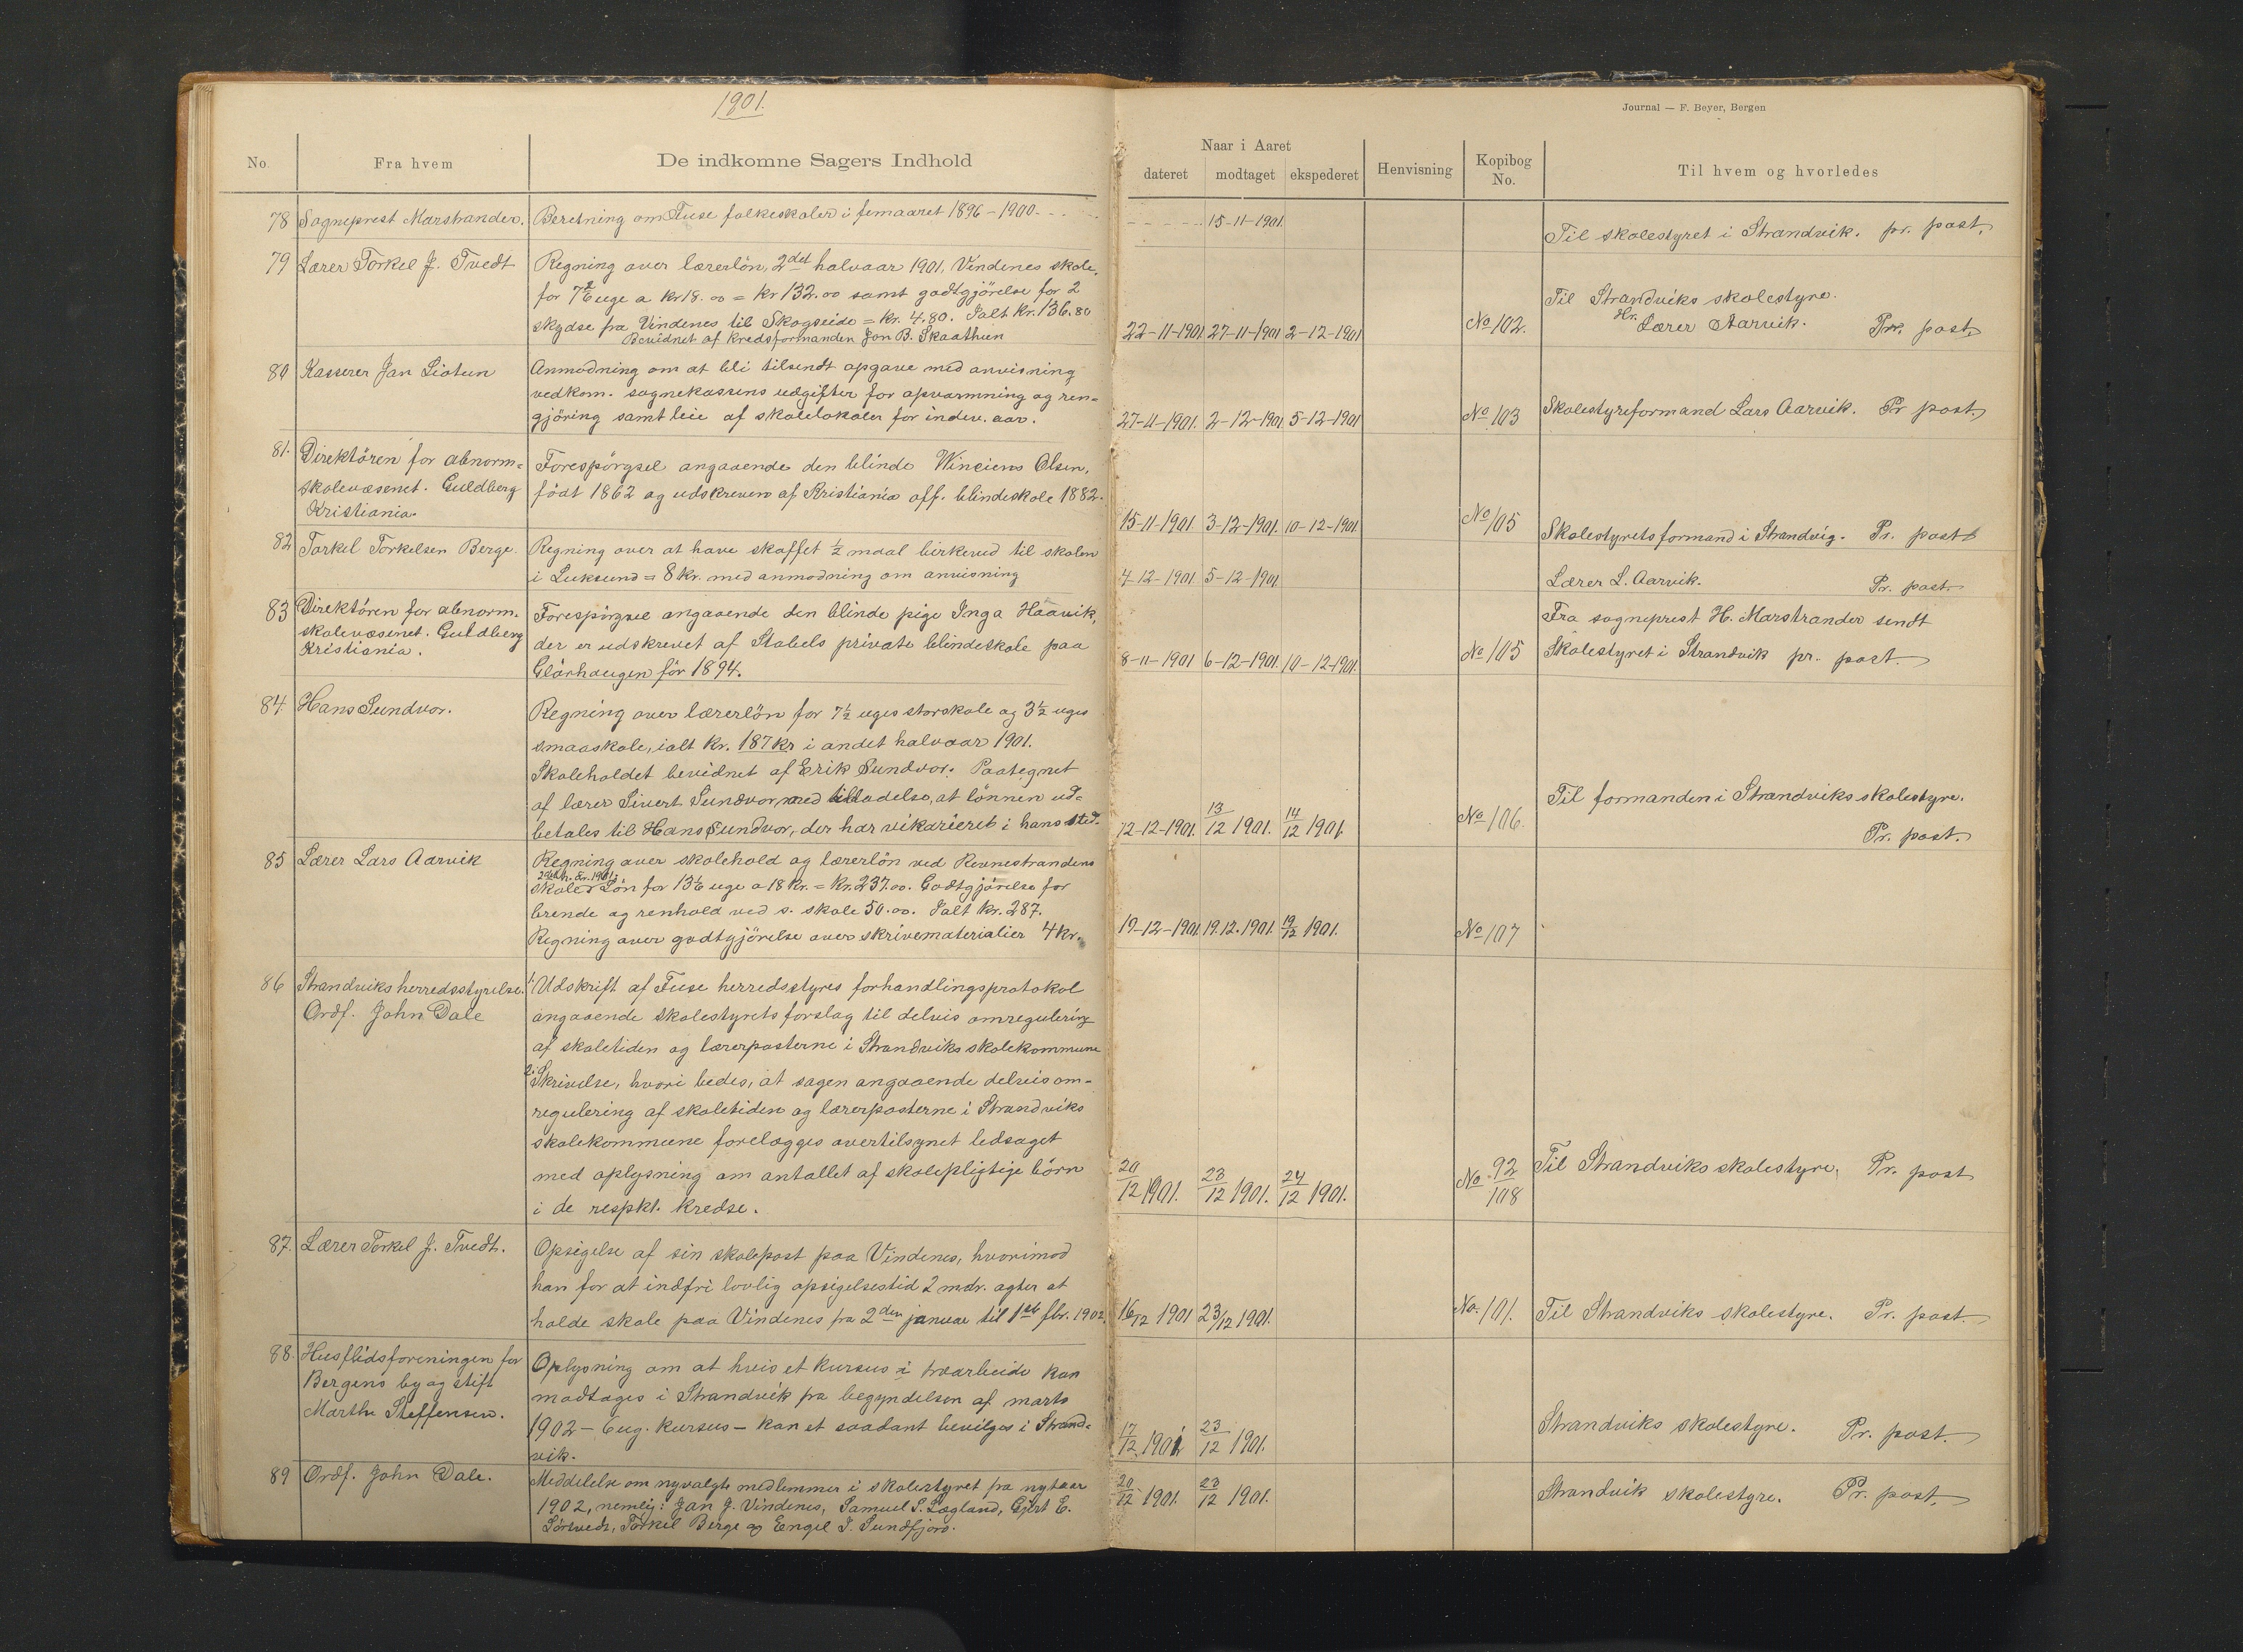 1901.
Journal — F. Beyer, Bergen
No. Fra hvem De indkomne Sagers Indhold
Naar i Aaret
dateret modtaget ekspederet Henvisning Kopibog No. Til hvem og hvorledes
78 Sogneprest Marstrander. Beretning om Fuse folkeskoler i femaaret 1896–1900.
15-11-1901. Til skolestyret i Strandvik. pr. post.
79 Lærer Torkel J. Tvedt Regning over lærerlön, 2det halvaar 1901, Vindenes skole,
for 7 2/6 uge a kr 18.00 = kr 132.00 samt godtgjörelse for 2
skydse fra Vindenes til Skogseide = kr. 4.80. Ialt kr. 136.80
Bevidnet af kredsformanden Jon B. Skaathun
22-11-1901. 27-11-1901 2-12-1901 No 102.
Til Strandviks skolestyre.
Hr. Lærer Aarvik. Pr. post.
80 Kasserer Jan Liotun Anmodning om at bli tilsendt opgave med anvisning
vedkom. sognekassens udgifter for opvarmning og ren-
gjöring samt leie af skolelokaler for indev. aar.
27-11-1901. 2-12-1901 5-12-1901 No 103 Skolestyreformand Lars Aarvik. Pr post.
81. Direktören for abnorm-
skolevæsenet. Guldberg
Kristiania.
Forespörgsel angaaende den blinde Winciens Olsen,
födt 1862 og udskreven af Kristiania off. blindeskole 1882.
15-11-1901. 3-12-1901. 10-12-1901 No 105 Skolestyrets formand i Strandvig. Pr. post
82 Torkel Torkelsen Berge. Regning over at have skaffet ½ maal birkeved til skolen
i Luksund = 8 kr. med anmodning om anvisning
4-12-1901. 5-12-1901. Lærer L. Aarvik. Pr. post.
83 Direktören for abnorm.
skolevæsenet. Guldberg
Kristiania.
Forespörgsel angaaende den blinde pige Inga Haavik,
der er udskrevet af Stabels private blindeskole paa
Glörhaugen för 1894.
8-11-1901 6-12-1901. 10-12-1901. No 105
Fra sogneprest H. Marstrander sendt
Skolestyret i Strandvik pr. post.
84. Hans Sundvor. Regning over lærerlön for 7½ uges storskole og 3½ uges
smaaskole, ialt kr. 187 kr i andet halvaar 1901.
Skoleholdet bevidnet af Erik Sundvor. Paategnet
af lærer Sivert Sundvor med tilladelse, at lönnen ud-
betales til Hans Sundvor, der har vikarieret i hans sted.
12-12-1901. 13/12 1901. 14/12 1901. No 106.
Til formanden i Strandviks skolestyre.
Pr. post.
85 Lærer Lars Aarvik Regning over skolehold og lærerlön ved Revnestrandens
2det h. år. 1901:
skole. Lön for 13 1/6 uge a 18 kr. = kr. 237.00. Godtgjörelse for
brende og renhold ved s. skole 50.00. Ialt kr. 287.
Regning over godtgjörelse over skrivematerialier 4 kr.
19-12-1901 19.12.1901. 19/12 1901. No 107
86 Strandviks herredsstyrelse.
Ordf. John Dale
1. Udskrift af Fuse herredsstyres forhandlingsprotokol
angaaende skolestyrets forslag til delvis omregulering
af skoletiden og lærerposterne i Strandviks skolekommune
2. Skrivelse, hvori bedes, at sagen angaaende delvis om-
regulering af skoletiden og lærerposterne i Strandviks
skolekommune forelægges overtilsynet ledsaget
med oplysning om antallet af skolepligtige börn
i de respkt. kredse.
20/12 1901. 23/12 1901. 24/12 1901. No. 92/108 Til Strandviks skolestyre. Pr. post
87. Lærer Torkel J. Tvedt. Opsigelse af sin skolepost paa Vindenes, hvorimod
han for at indfri lovlig opsigelsestid 2 mdr. agter at
holde skole paa Vindenes fra 2den januar til 1st fbr. 1902.
16/12 1901 23/12 1901. No. 101. Til Strandviks skolestyre. Pr. post.
88. Husflidsforeningen for
Bergens by og stift
Marthe Steffensen.
Oplysning om at hvis et kursus i træarbeide kan
modtages i Strandvik fra begyndelsen af marts
1902 – 6 ug. kursus – kan et saadant bevilges i Strand-
vik.
17/12 1901 23/12 1901. Strandviks skolestyre. Pr. post.
89 Ordf. John Dale. Meddelelse om nyvalgte medlemmer i skolestyret fra nytaar
1902, nemlig: Jan J. Vindenes, Samuel S. Lægland, Gjert E.
Sörtvedt, Torkel Berge og Engel J. Sundfjord.
20/12 1901. 23/12 1901. Strandvik skolestyre. Pr. post.